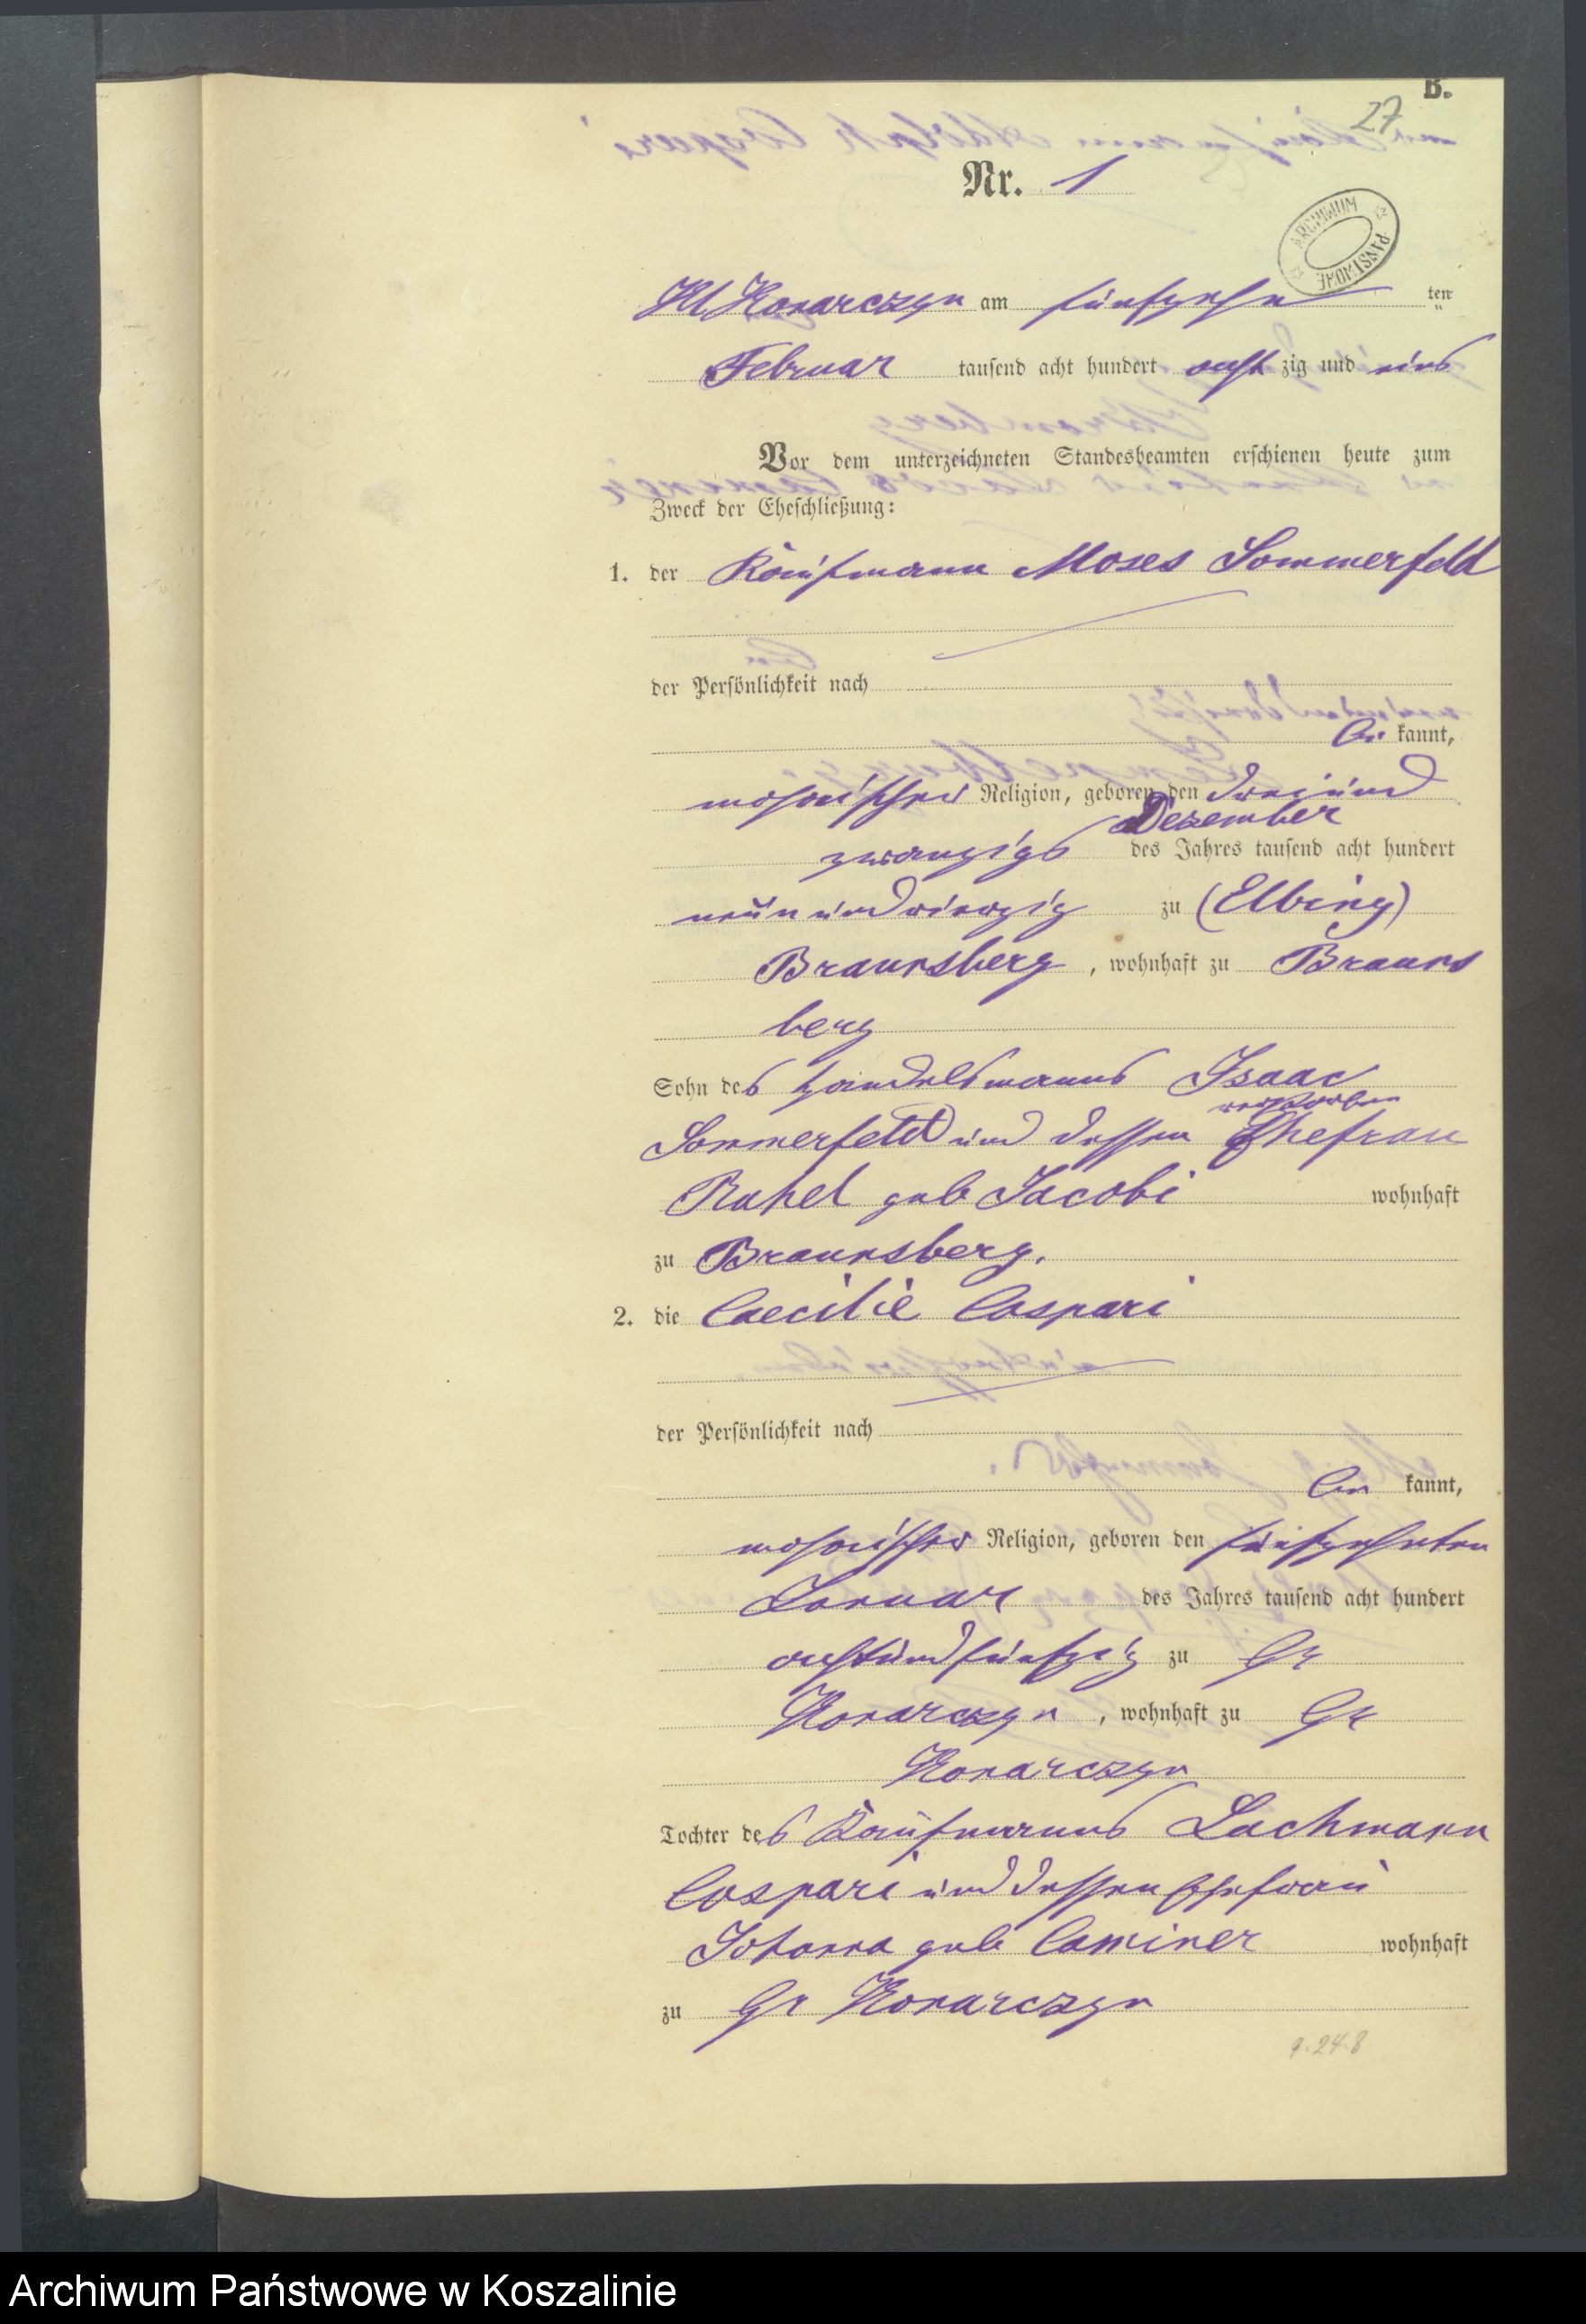 B.
27
Nr. 1
ARCHIWUM PAŃSTWOWE
Kl Konarczyn am fünfzehn ten
Februar tausend acht hundert acht zig und eins
Vor dem unterzeichneten Standesbeamten erschienen heute zum
Zweck der Eheschließung:
1. der Kaufmann Moses Sommerfeld
der Persönlichkeit nach
be kannt,
mosaischer Religion, geboren den dreiund
Dezember
zwanzigs des Jahres tausend acht hundert
neunundvierzig zu (Elbing)
Braunsberg, wohnhaft zu Brauns
berg
Sohn des Handelsmanns Isaac
verstorben
Sommerfeld und dessen Ehefrau
Rahel geb Jacobi wohnhaft
zu Braunsberg.
2. die Caecilie Caspari
der Persönlichkeit nach
be kannt,
mosaischer Religion, geboren den fünfzehnten
Januar des Jahres tausend acht hundert
achtundfünfzig zu Gr
Konarczyn, wohnhaft zu Gr
Konarczyn
Tochter des Kaufmanns Lachmann
Caspari und dessen Ehefrau
Johanna geb Caminer wohnhaft
zu Gr Konarczyn
9.24.8
Archiwum Państwowe w Koszalinie